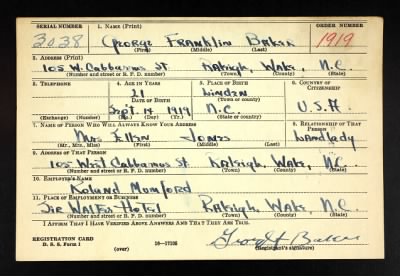 SERIAL NUMBER 1. NAME (Print) ORDER NUMBER
3038 George Franklin Baker 1919
(First) (Middle) (Last)
2. ADDRESS (Print)
105 W. Cabbarus St. Raleigh, Wake, N.C.
(Number and street or R. F. D. number) (Town) (County) (State)
3. TELEPHONE 4. AGE IN YEARS 5. PLACE OF BIRTH 6. COUNTRY OF CITIZENSHIP
21 Linden
DATE OF BIRTH (Town or county)
Sept. 14 1919 N.C. U.S.A.
(Exchange) (Number) (Mo.) (Day) (Yr.) (State or country)
7. NAME OF PERSON WHO WILL ALWAYS KNOW YOUR ADDRESS 8. RELATIONSHIP OF THAT PERSON
Mrs Ellen Jones Landlady
(Mr., Mrs., Miss) (First) (Middle) (Last)
9. ADDRESS OF THAT PERSON
105 West Cabbarus St. Raleigh, Wake, N.C.
(Number and street or R. F. D. number) (Town) (County) (State)
10. EMPLOYER'S NAME
Roland Momford
11. PLACE OF EMPLOYMENT OR BUSINESS
Sir Walter Hotel Raleigh, Wake, N.C.
(Number and street or R. F. D. number) (Town) (County) (State)
I AFFIRM THAT I HAVE VERIFIED ABOVE ANSWERS AND THAT THEY ARE TRUE.
REGISTRATION CARD
D. S. S. Form 1 (over) 16—17105 George F Baker
(Registrant's signature)